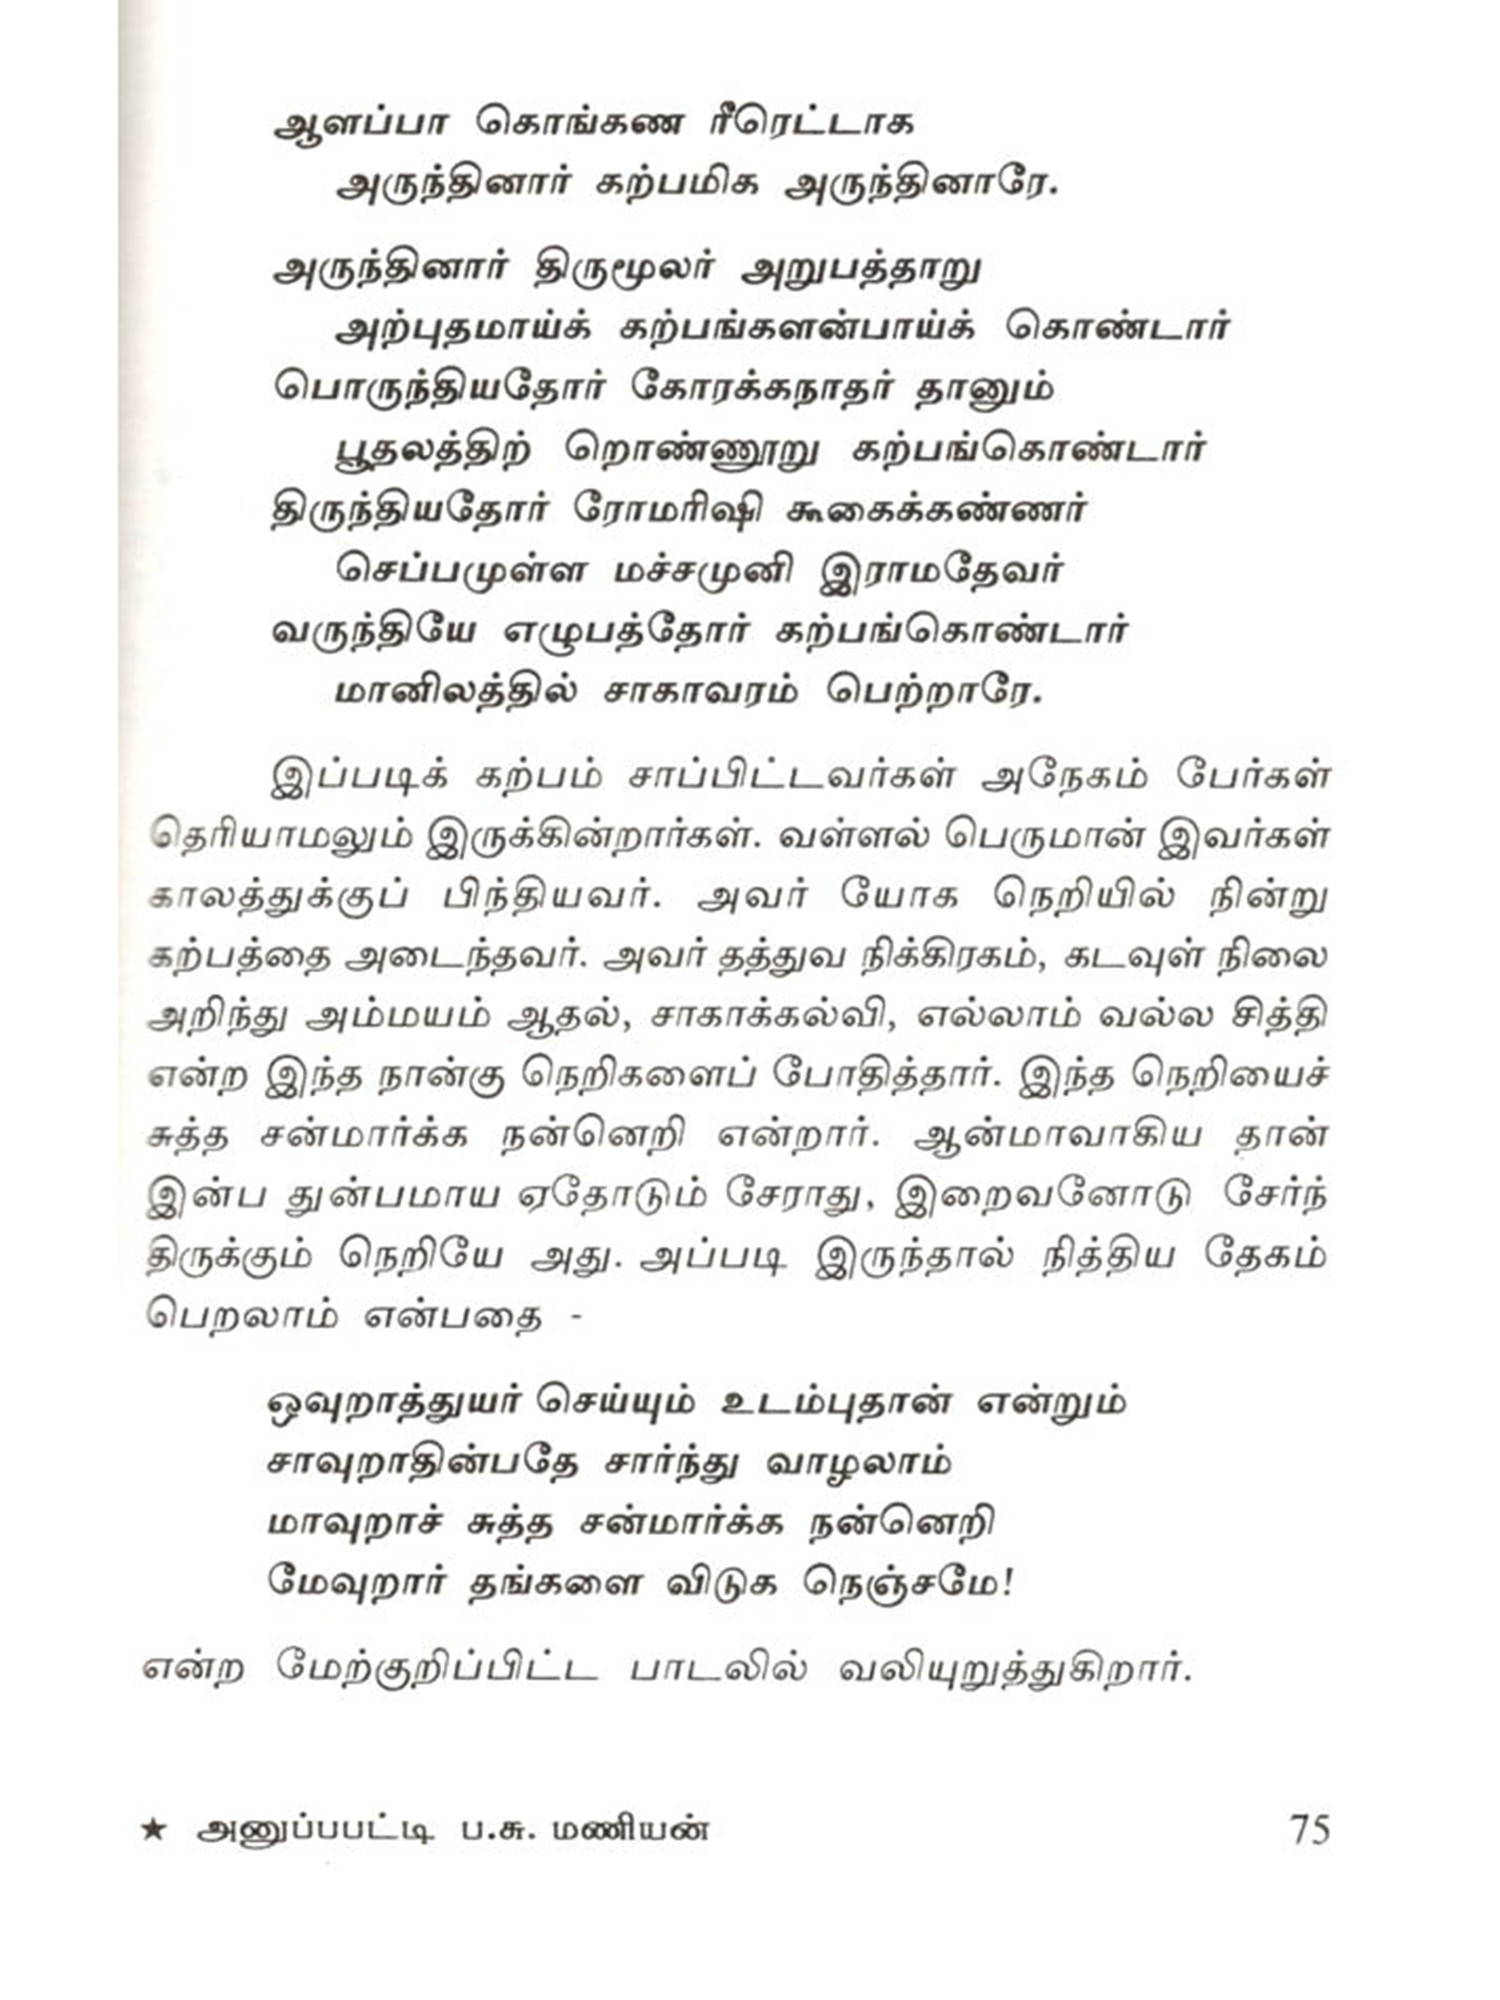 ஆளப்பா கொங்கண ரீரெட்டாக
அருந்தினார் கற்பமிக அருந்தினாரே.
அருந்தினார் திருமூலர் அறுபத்தாறு
அற்புதமாய்க் கற்பங்களன்பாய்க் கொண்டார்
பொருந்தியதோர் கோரக்கநாதர் தானும்
பூதலத்திற் றொண்ணூறு கற்பங்கொண்டார்
திருந்தியதோர் ரோமரிஷி கூகைக்கண்ணர்
செப்பமுள்ள மச்சமுனி இராமதேவர்
வருந்தியே எழுபத்தோர் கற்பங்கொண்டார்
மானிலத்தில் சாகாவரம் பெற்றாரே.
இப்படிக் கற்பம் சாப்பிட்டவர்கள் அநேகம் பேர்கள்
தெரியாமலும் இருக்கின்றார்கள். வள்ளல் பெருமான் இவர்கள்
காலத்துக்குப் பிந்தியவர். அவர் யோக நெறியில் நின்று
கற்பத்தை அடைந்தவர். அவர் தத்துவ நிக்கிரகம், கடவுள் நிலை
அறிந்து அம்மயம் ஆதல், சாகாக்கல்வி, எல்லாம் வல்ல சித்தி
என்ற இந்த நான்கு நெறிகளைப் போதித்தார். இந்த நெறியைச்
சுத்த சன்மார்க்க நன்னெறி என்றார். ஆன்மாவாகிய தான்
இன்ப துன்பமாய ஏதோடும் சேராது, இறைவனோடு சேர்ந்
திருக்கும் நெறியே அது. அப்படி இருந்தால் நித்திய தேகம்
பெறலாம் என்பதை -
ஒவுறாத்துயர் செய்யும் உடம்புதான் என்றும்
சாவுறாதின்பதே சார்ந்து வாழலாம்
மாவுறாச் சுத்த சன்மார்க்க நன்னெறி
மேவுறார் தங்களை விடுக நெஞ்சமே!
என்ற மேற்குறிப்பிட்ட பாடலில் வலியுறுத்துகிறார்.
★ அனுப்பபட்டி ப.சு. மணியன் 75